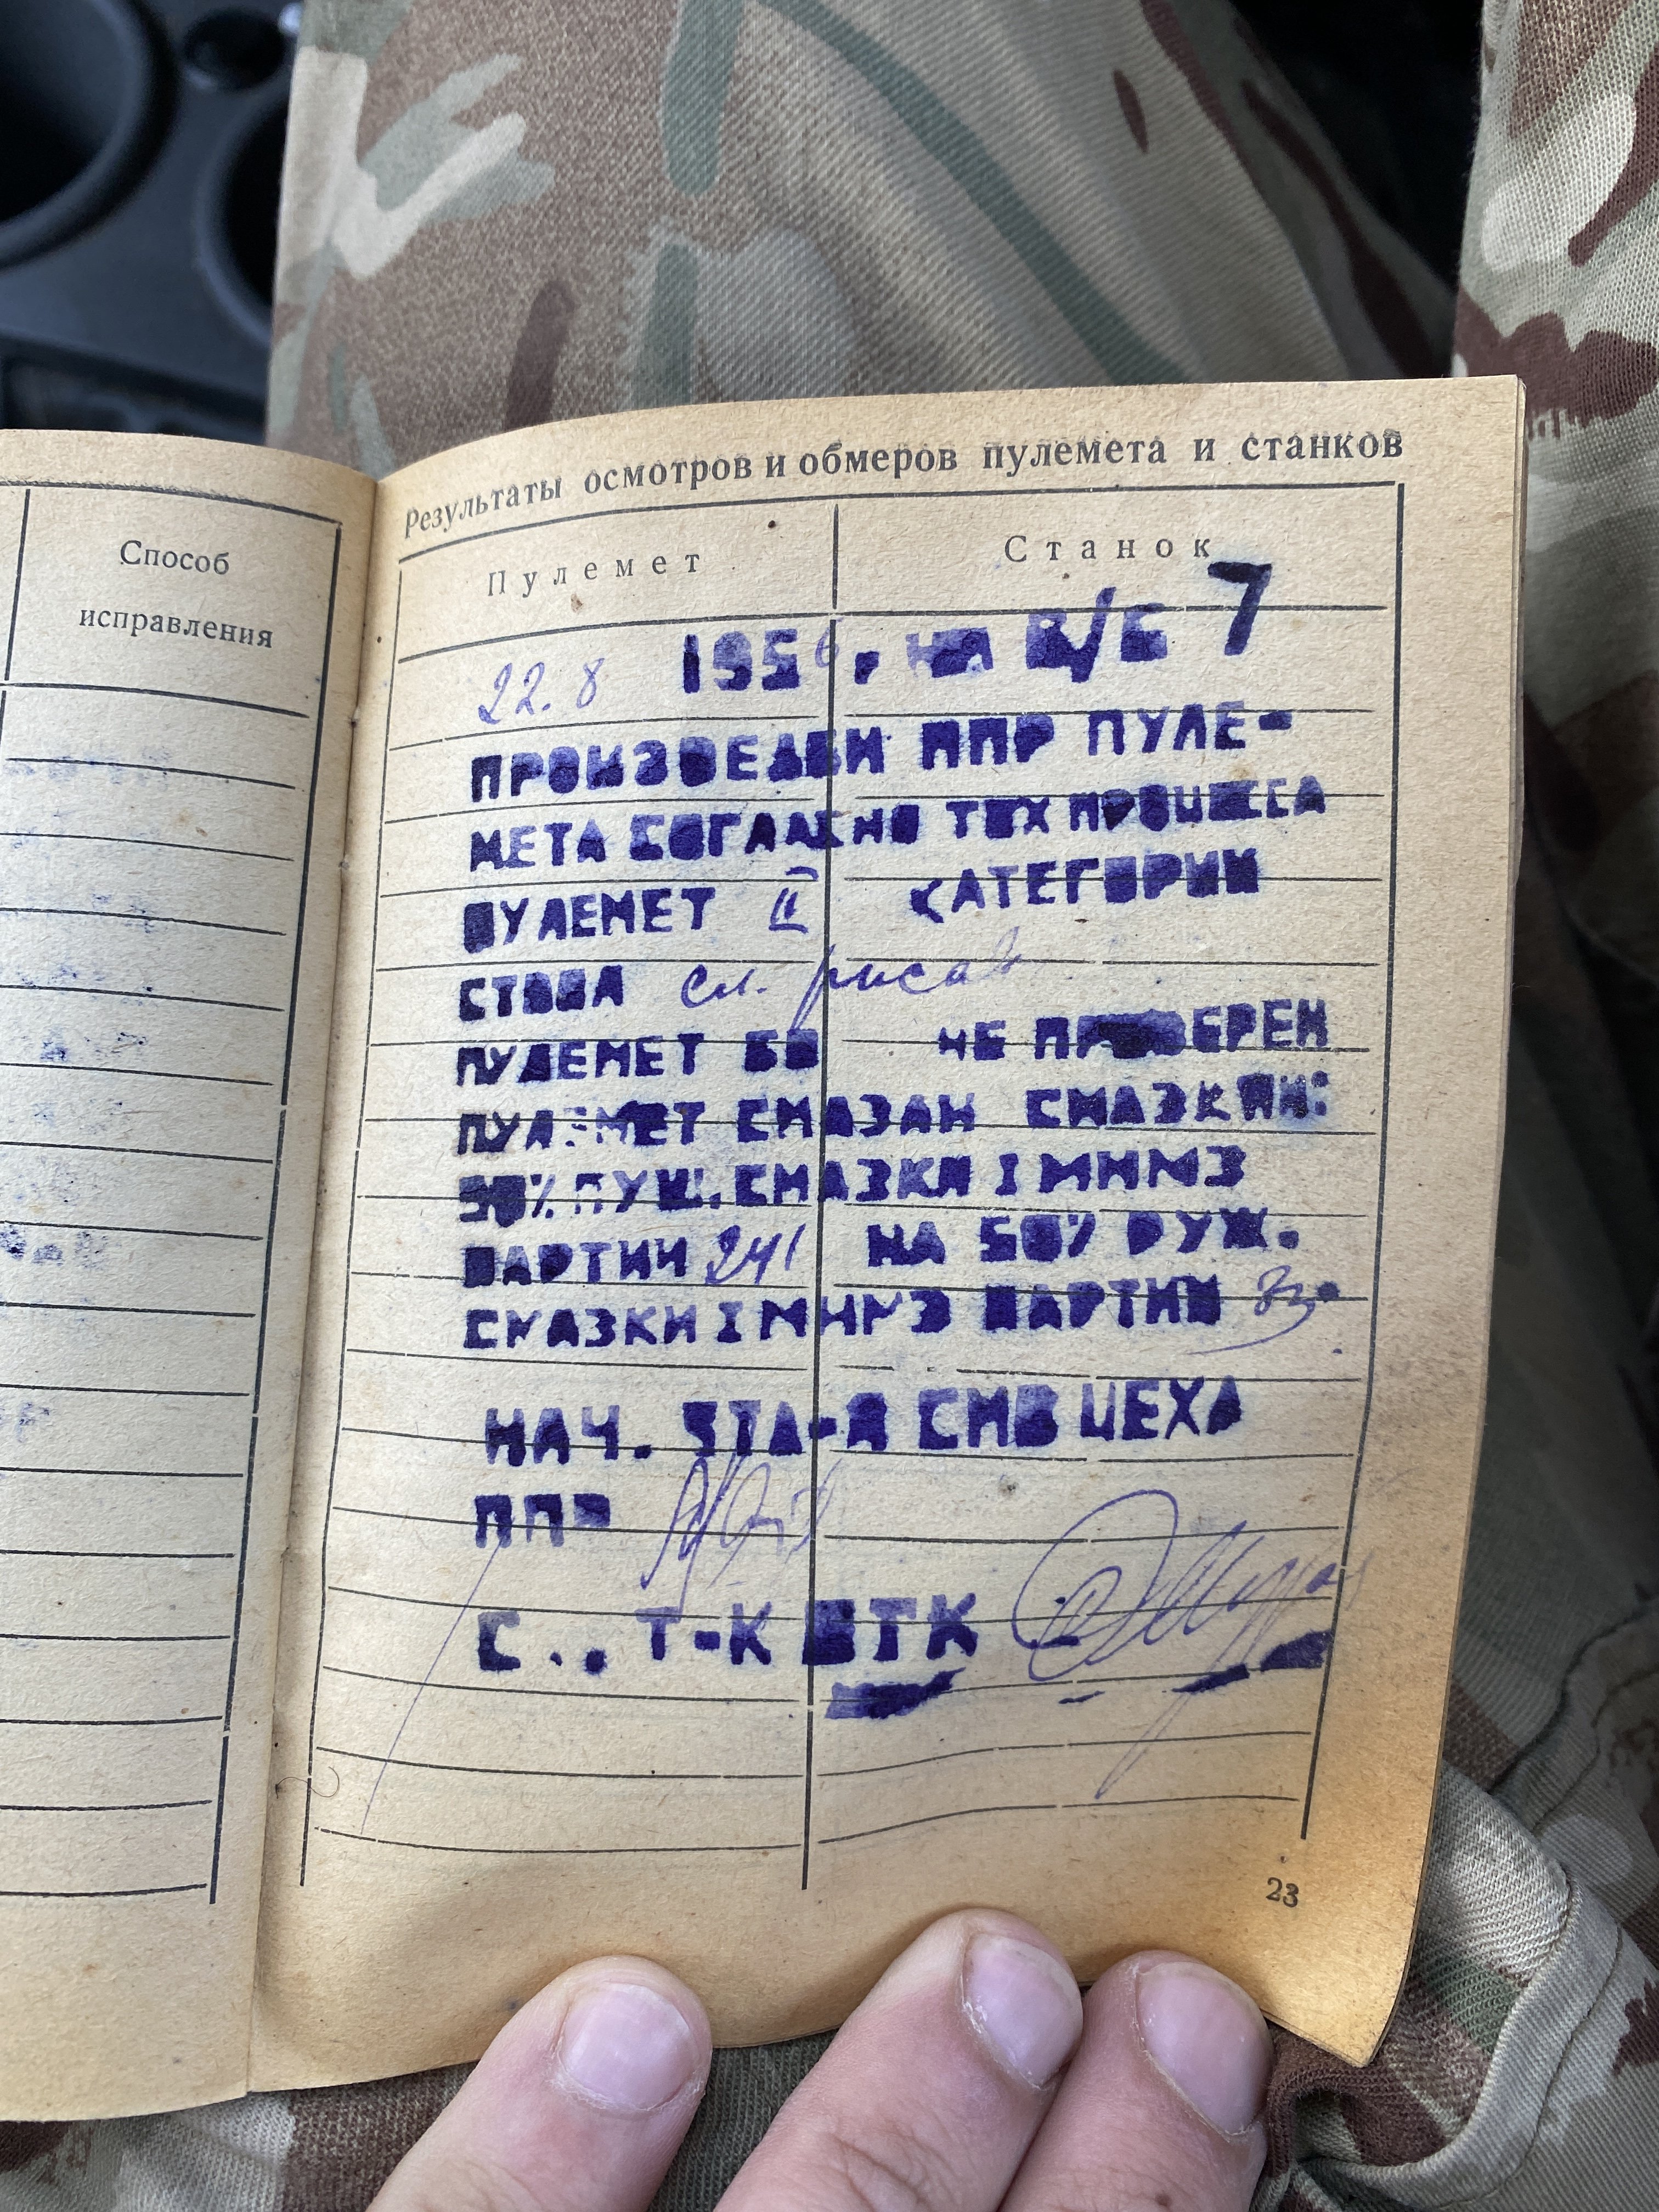 Способ
исправления
Результаты осмотров и обмеров пулемета и станков
Пулемет Станок
22.8 1956. НА В/Б 7
ПРОИЗВЕДЕН ППР ПУЛЕ-
МЕТА СОГЛАСНО ТЕХПРОЦЕССА
ПУЛЕМЕТ II КАТЕГОРИИ
СТВОЛ сл.
ПУЛЕМЕТ БО НЕ ПРОВЕРЕН
ПУЛЕМЕТ СМАЗАН СМАЗКАМИ:
50% ПУШ. СМАЗКИ I МНМЗ
ПАРТИИ 241 НА 50% РУЖ.
СМАЗКИ I МНМЗ ПАРТИИ
НАЧ. ЦЕХА
ППР
С.. Т-К ВТК
23